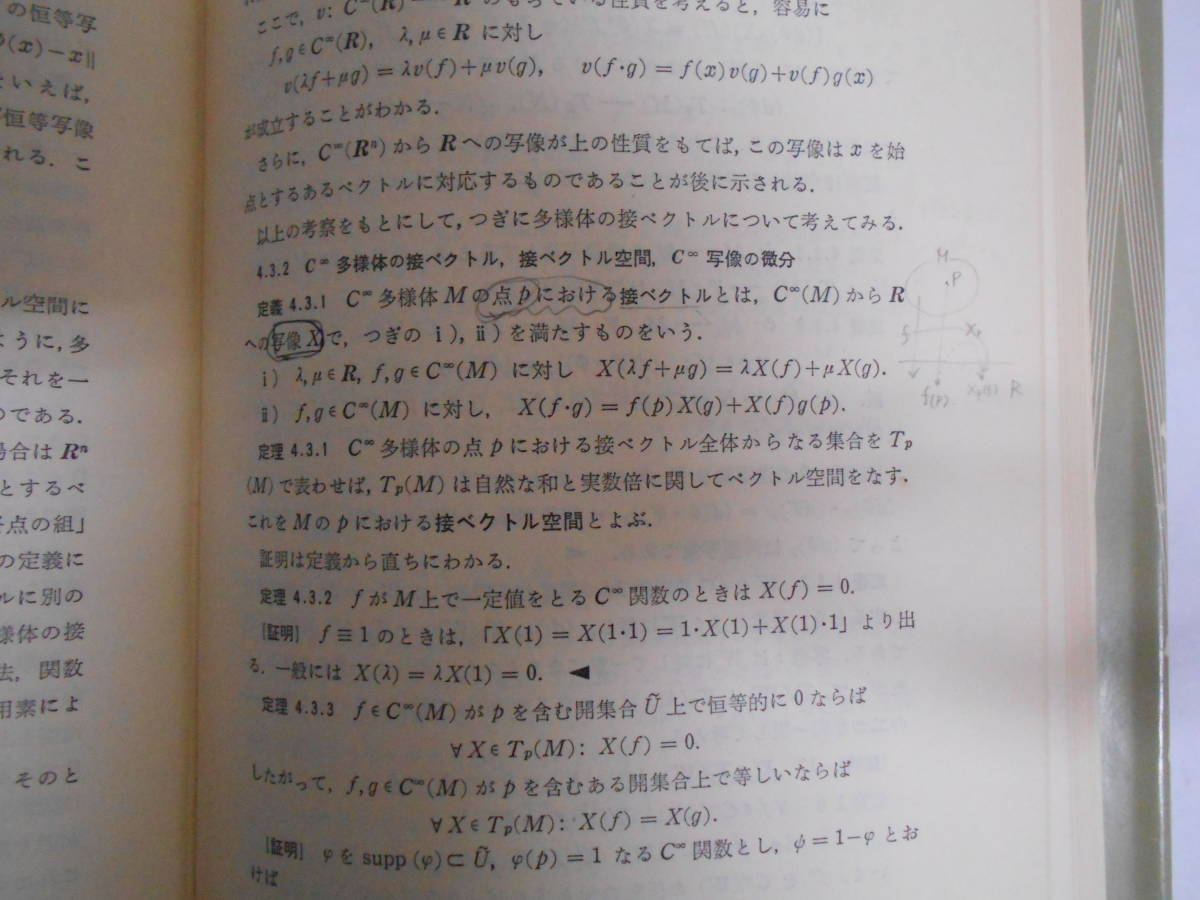 の恒等写
(x)−x‖
といえば，
恒等写像
れる．こ
ル空間に
ように，多
それを一
のである．
場合は Rⁿ
とするべ
点の組」
の定義に
ルに別の
様体の接
法，関数
用素によ
そのと
f,g∈C∞(R)， λ,μ∈R に対し
v(λf+μg)=λv(f)+μv(g)， v(f·g)=f(x)v(g)+v(f)g(x)
が成立することがわかる．
さらに，C∞(Rⁿ) から R への写像が上の性質をもてば，この写像は x を始
点とするあるベクトルに対応するものであることが後に示される．
以上の考察をもとにして，つぎに多様体の接ベクトルについて考えてみる．
4.3.2 C∞ 多様体の接ベクトル，接ベクトル空間，C∞ 写像の微分
定義 4.3.1 C∞ 多様体 M の点 p における接ベクトルとは，C∞(M) から R
への写像 X で，つぎの i)，ii) を満たすものをいう．
i) λ,μ∈R, f,g∈C∞(M) に対し X(λf+μg)=λX(f)+μX(g).
ii) f,g∈C∞(M) に対し， X(f·g)=f(p)X(g)+X(f)g(p).
定理 4.3.1 C∞ 多様体の点 p における接ベクトル全体からなる集合を Tp
(M) で表わせば，Tp(M) は自然な和と実数倍に関してベクトル空間をなす．
これを M の p における接ベクトル空間とよぶ．
証明は定義から直ちにわかる．
定理 4.3.2 f が M 上で一定値をとる C∞ 関数のときは X(f)=0.
[証明] f≡1 のときは，「X(1)=X(1·1)=1·X(1)+X(1)·1」より出
る．一般には X(λ)=λX(1)=0. ◀
定理 4.3.3 f∈C∞(M) が p を含む開集合 Ũ 上で恒等的に 0 ならば
∀X∈Tp(M): X(f)=0.
したがって，f,g∈C∞(M) が p を含むある開集合上で等しいならば
∀X∈Tp(M): X(f)=X(g).
[証明] φ を supp(φ)⊂Ũ, φ(p)=1 なる C∞ 関数とし，ψ=1−φ とお
けば
M
P
f
Xp
f(p)
Xp(f)
R